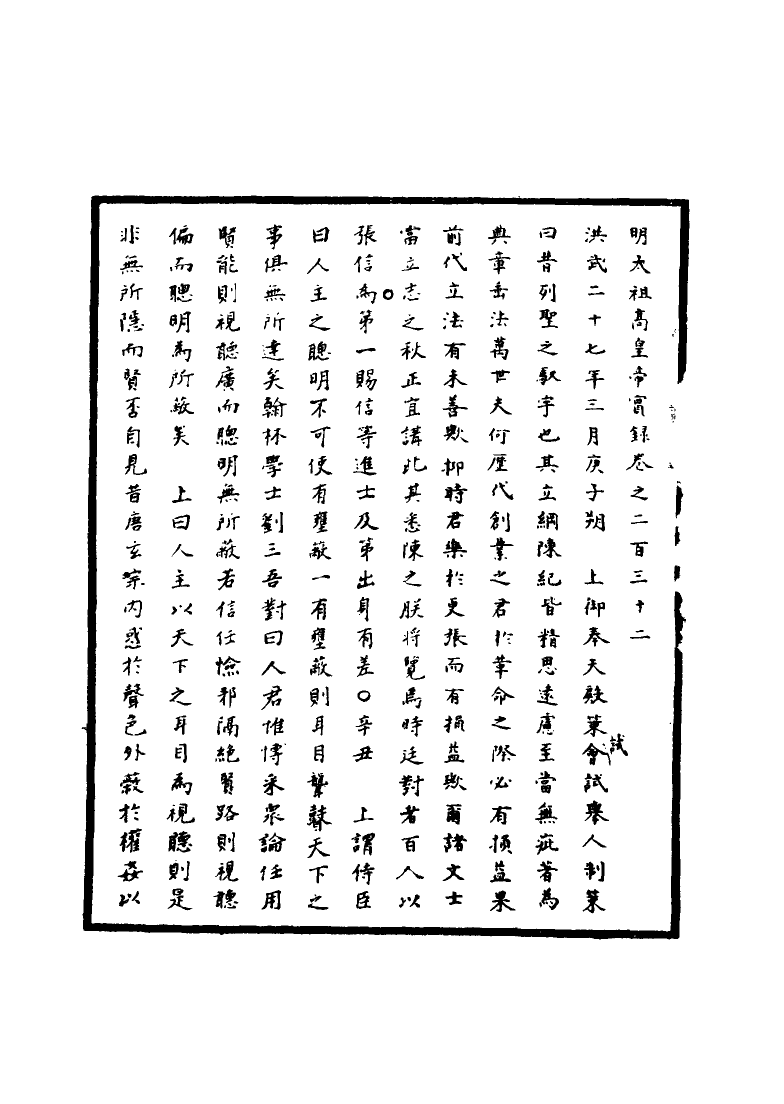 明太祖高皇帝實錄卷之二百三十二
洪武二十七年三月庚子朔　上御奉天殿策會試舉人制策
曰昔列聖之馭宇也其立綱陳紀皆精思遠慮至當無疵著為
典章垂法萬世夫何歷代創業之君於革命之際必有損益果
前代立法有未善歟抑時君樂於更張而有損益歟爾諸文士
當立志之秋正宜講此其悉陳之朕將覽焉時廷對者百人以
張信為第一賜信等進士及第出身有差○辛丑　上謂侍臣
曰人主之聰明不可使有壅蔽一有壅蔽則耳目聾瞽天下之
事俱無所達矣翰林學士劉三吾對曰人君惟博采眾論任用
賢能則視聽廣而聰明無所蔽若信任憸邪隔絕賢路則視聽
偏而聰明為所蔽矣　上曰人主以天下之耳目為視聽則是
非無所隱而賢否自見昔唐玄宗內惑於聲色外蔽於權姦以